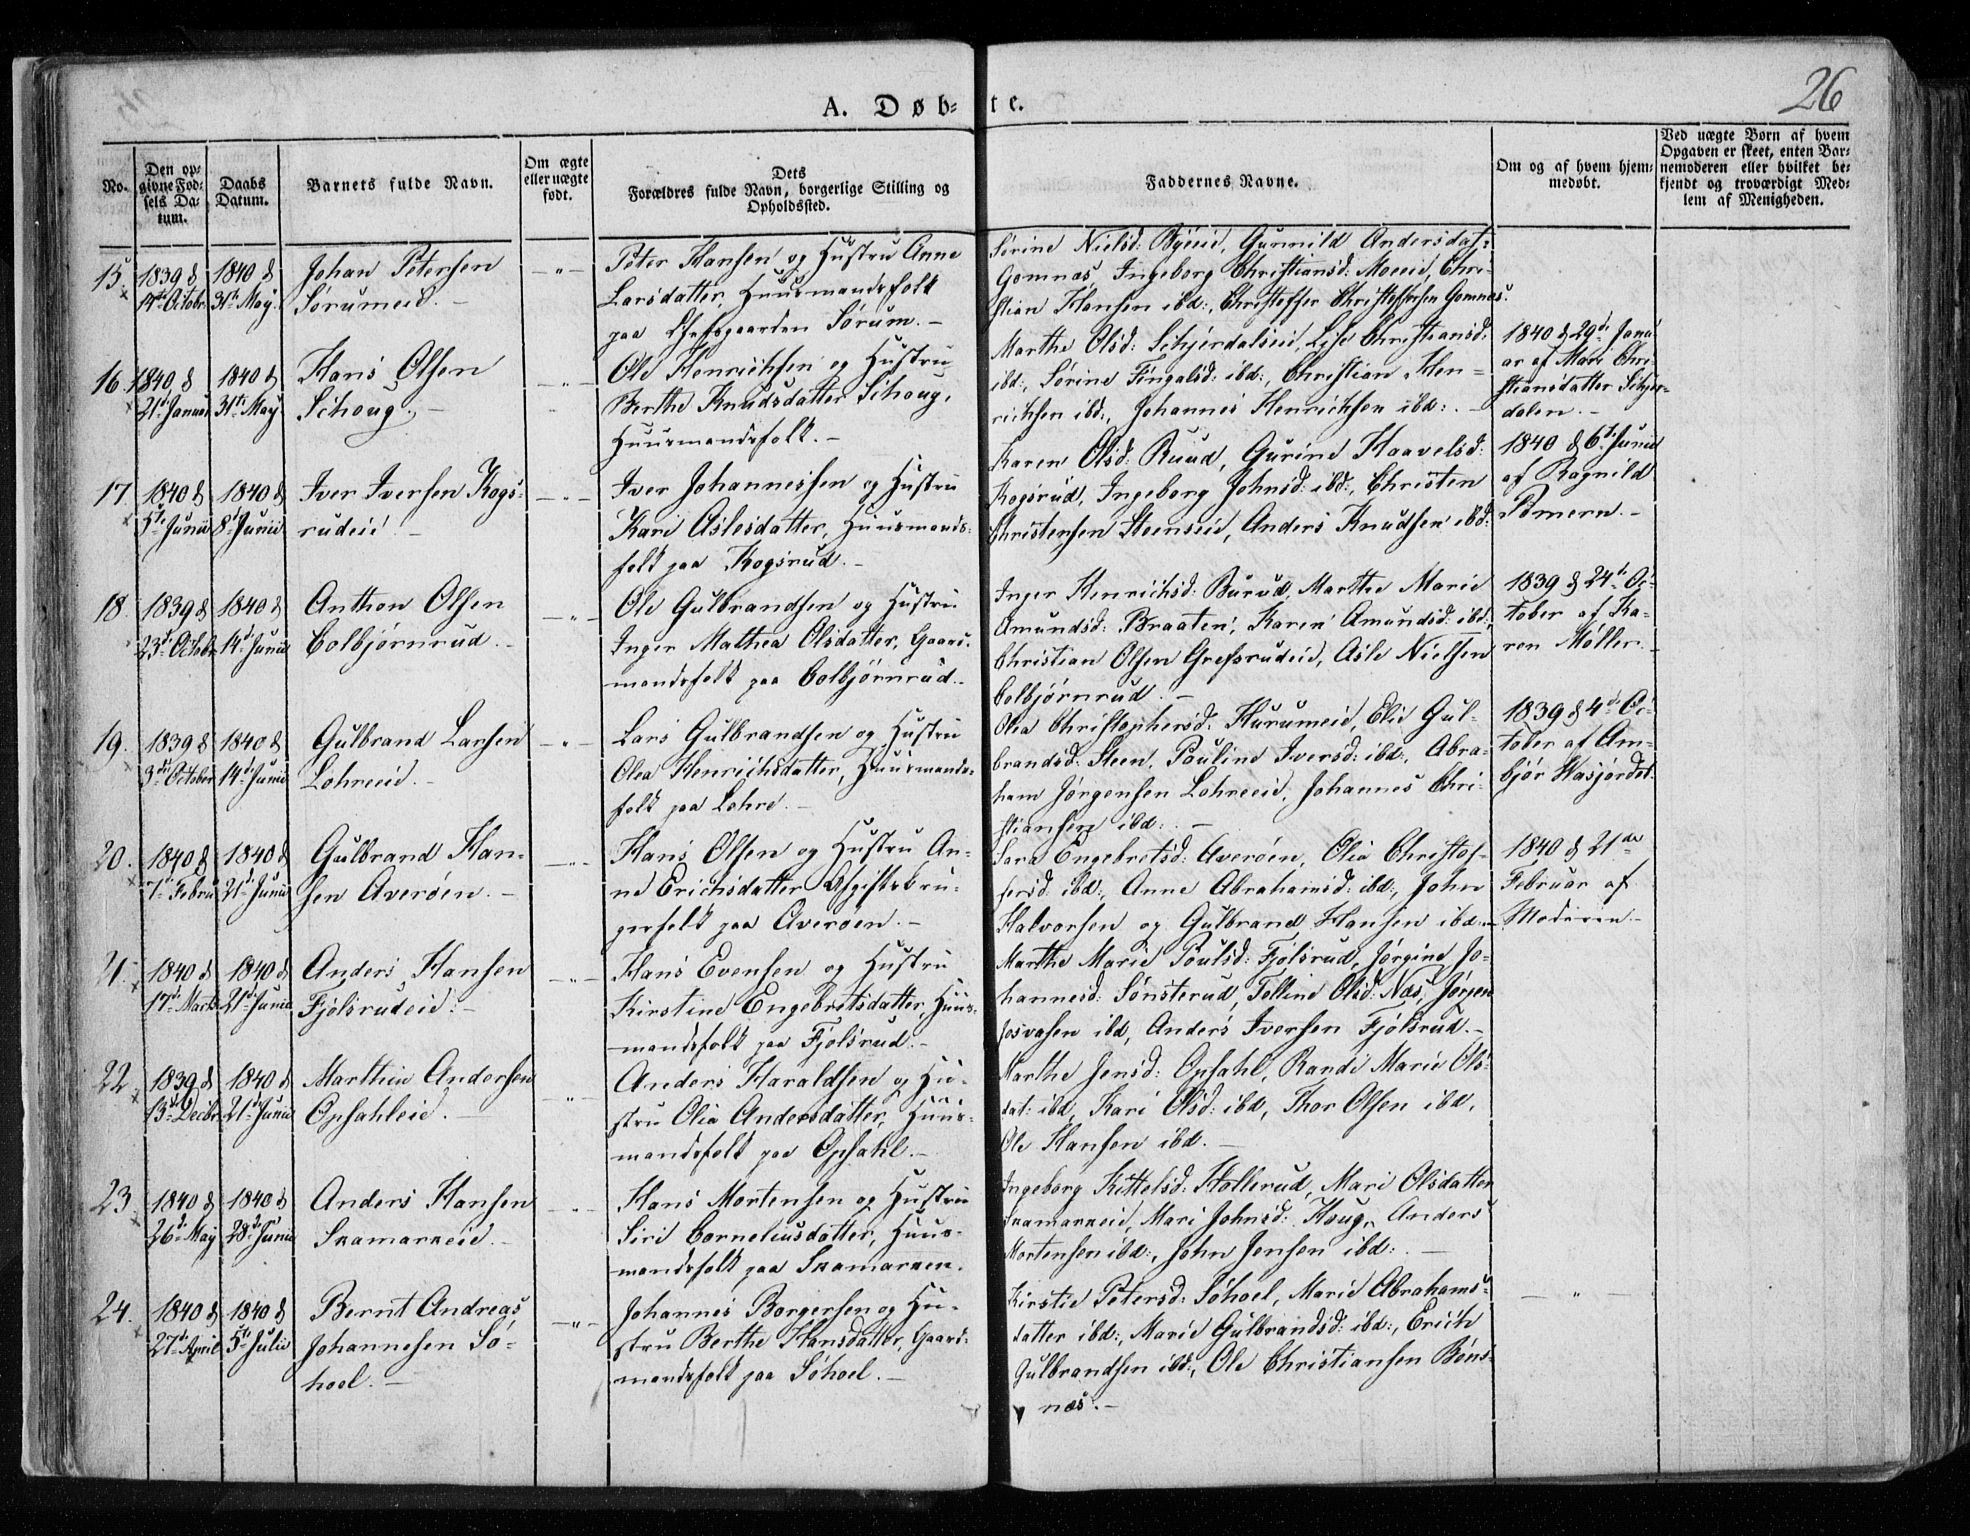 26
A. Døb- te.
No.
Den op-
givne Fød-
sels Da-
tum.
Daabs
Datum.
Barnets fulde Navn.
Om ægte
eller uægte
født.
Dets
Forældres fulde Navn, borgerlige Stilling og
Opholdssted.
Faddernes Navne.
Om og af hvem hjem-
medøbt.
Ved uægte Børn af hvem
Opgaven er skeet, enten Bar-
nemoderen eller hvilket be-
kjendt og troværdigt Med-
lem af Menigheden.
15
1839 d
14de Octobr
1840 d
31te May
Johan Petersen
Sørumeid. –
– „ –
Peter Hansen og Hustru Anne
Larsdatter, Huusmandsfolk
paa Chefsgaarden Sørum. –
Sørine Nielsd: Byeeid, Gunnild Andersdat-
Gomnæs Ingeborg Christiansd: Moeeid, Chri-
stian Hansen ibd:, Christoffer Christophersen Gomnæs.
16
1840 d
21de Januar
1840 d
31te May
Hans Olsen
Schoug. –
– „ –
Ole Henrichsen og Hustru
Berthe Knudsdatter Schoug,
Huusmandsfolk. –
Marthe Olsd: Schjerdalseid, Lise Christiansd:
ibd:, Sørine Fingalsd: ibd:, Christian Hen-
richsen ibd:, Johannes Henrichsen ibd: –
1840 d 29de Janu-
ar af Mari Chri-
stiansdatter Schjer-
dalen. –
17
1840 d
5te Junii
1840 d
8de Junii
Iver Iversen Kogs-
rudeie. –
– „ –
Iver Johannessen og Hustru
Kari Aslesdatter, Huusmands-
folk paa Kogsrud. –
Karen Olsd: Ruud, Gurine Haavelsd:
Kogsrud, Ingeborg Johnsd: ibd:, Christen
Christensen Steenseid, Anders Knudsen ibd:
1840 d 6te Junii
af Ragnild
Pomern. –
18.
1839 d
23de Octobr
1840 d
14de Junii
Anthon Olsen
Colbjørnrud. –
– „ –
Ole Gulbrandsen og Hustru
Inger Mathea Olsdatter, Gaard-
mandsfolk paa Colbjørnrud. –
Inger Henrichsd: Burud, Marthe Marie
Amundsd: Braaten, Karen Amundsd: ibd:,
Christian Olsen Grefsrudeid, Asle Nielsen
Colbjørnrud. –
1839 d 24de Oc-
tober af Ka-
ren Møller. –
19.
1839 d
3de October
1840 d
14de Junii
Gulbrand Larsen
Lohreeid. –
– „ –
Lars Gulbrandsen og Hustru
Olea Henrichsdatter, Huusmands-
folk paa Lohre. –
Olea Christophersd: Hurumeid, Elie Gul-
brandsd: Steen, Pauline Iversd: ibd:, Abra-
ham Jørgensen Lohreeid, Johannes Chri-
stiansen ibd: –
1839 d 4de Oc-
tober af Am-
bjør Hasjordet.
20.
1840 d
7de Febru
1840 d
21de Junii
Gulbrand Han-
sen Averøen. –
– „ –
Hans Olsen og Hustru An-
ne Erichsdatter Bygslebru-
gerfolk paa Averøen. –
Sara Engebretsd: Averøen, Olia Christof-
fersd: ibd:, Anne Abrahamsd: ibd:, John
Halvorsen og Gulbrand Hansen ibd: –
1840 d 21de
Februar af
Moderen –
21
1840 d
17de Marts
1840 d
21de Junii
Anders Hansen
Fjølsrudeie. –
– „ –
Hans Evensen og Hustru
Kirstine Engebretsdatter, Huus-
mandsfolk paa Fjølsrud. –
Marthe Marie Poulsd: Fjølsrud, Jørgine Jo-
hannesd: Sønsterud, Telline Olsd: Næs, Jørgen
Josvasen ibd, Anders Iversen Fjølsrud. –
22
1839 d
13de Decbr
1840 d
21de Junii
Marthin Andersen
Opsahleie. –
„ –
Anders Haraldsen og Hu-
stru Olia Andersdatter, Huus-
mandsfolk paa Opsahl. –
Marthe Jensd: Opsahl, Randi Marie Ols-
dat: ibd, Kari Olsd: ibd, Thor Olsen ibd,
Ole Hansen ibd. –
23
1840 d
26de May
1840 d
28de Junii
Anders Hansen
Snamarkeid. –
– „ –
Hans Mortensen og Hustru
Siri Corneliusdatter, Huus-
mandsfolk paa Snamarken.
Ingeborg Kittelsd: Hollerud, Mari Olsdatter
Snamarkeid, Mari Johnsd: Haug, Anders
Mortensen ibd:, John Jensen ibd: –
24.
1840 d
27de April
1840 d
5te Julii
Bernt Andreas
Johannesen Sø-
hoel. –
– „ –
Johannes Borgersen og Hu-
stru Berthe Hansdatter, Gaard-
mandsfolk paa Søhoel. –
Kirstie Petersd: Søhoel, Marie Abrahams-
datter ibd:, Marie Gulbrandsd: ibd:, Erich
Gulbrandsen ibd:, Ole Christiansen Bøns-
næs. –
– „ –